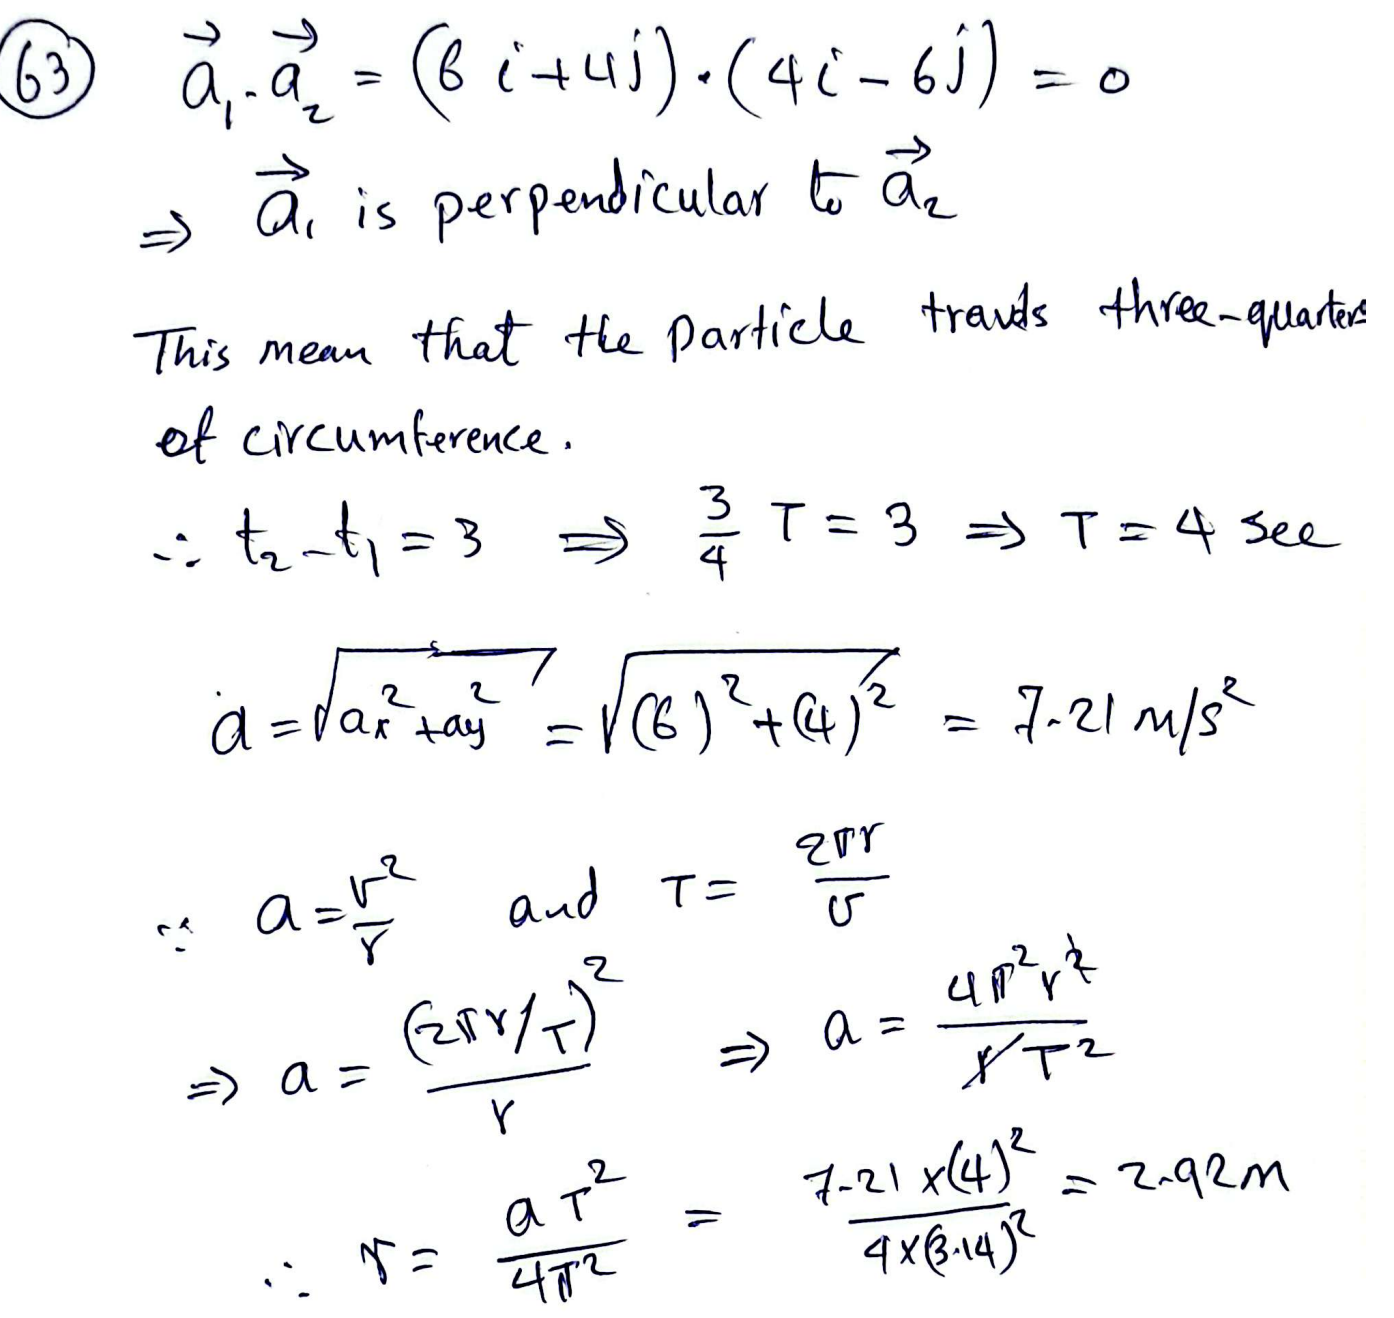 63 a⃗₁·a⃗₂ = (6i+4j)·(4i-6j) = 0
⇒ a⃗₁ is perpendicular to a⃗₂
This mean that the particle travels three-quarters
of circumference.
∴ t₂-t₁=3 ⇒ 3/4 T=3 ⇒ T=4 sec
a=√(ax²+ay²) = √((6)²+(4)²) = 7.21 m/s²
∵ a=v²/r and T= 2πr/v
⇒ a= (2πr/T)²/r ⇒ a= 4π²r²/rT²
∴ r= aT²/4π² = 7.21×(4)²/4×(3.14)² = 2.92m